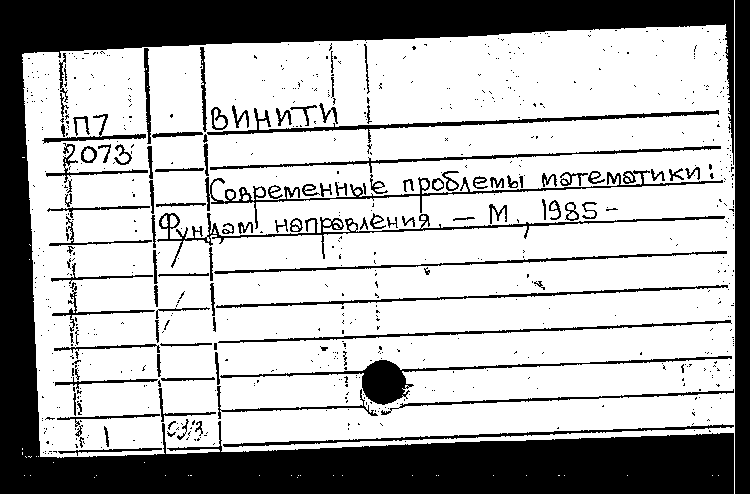 П7 ВИНИТИ
2073
Современные проблемы математики:
Фундам. направления. — М., 1985 –
1